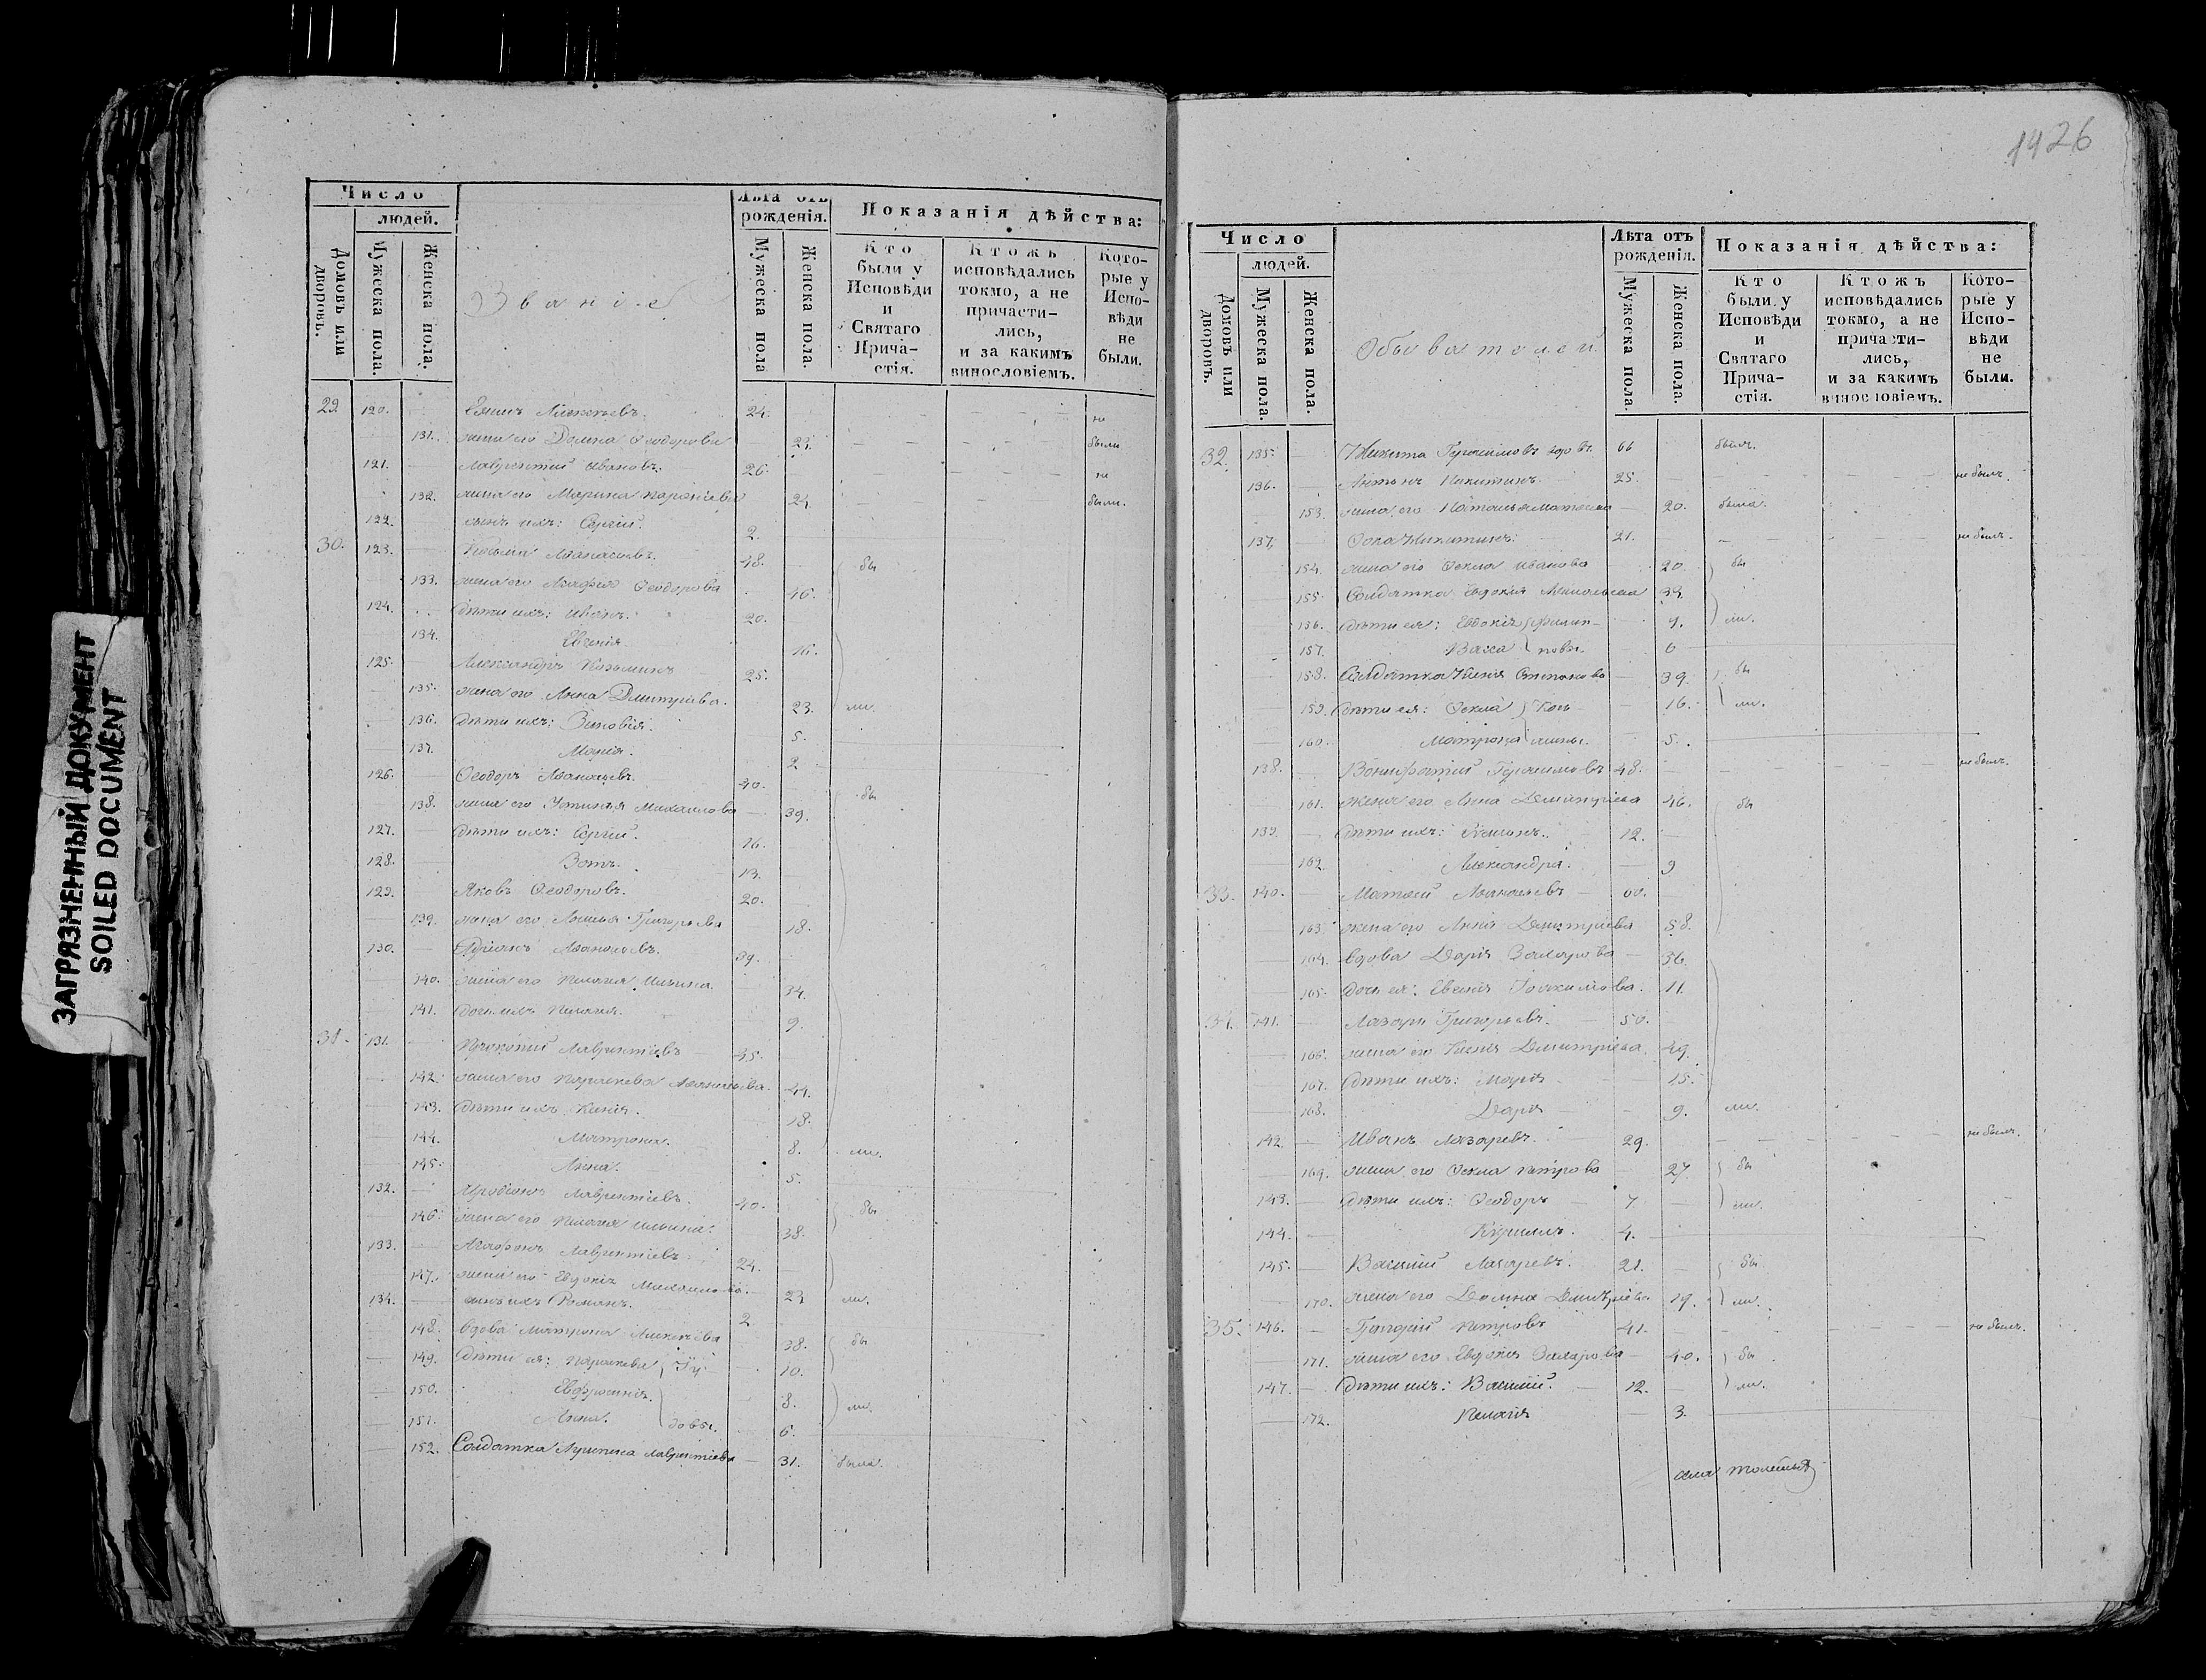 1426
ЗАГРЯЗНЕННЫЙ ДОКУМЕНТ
SOILED DOCUMENT
Число
людей.
Домовъ или дворовъ.
Мужеска пола.
Женска пола.
Званіе
Лѣта отъ рожденія.
Мужеска пола
Женска пола.
Показанія дѣйства:
Кто были у Исповѣди и Святаго Причастія.
Ктожъ исповѣдались токмо, а не причастились, и за какимъ винословіемъ.
Которые у Исповѣди не были.
29 120. Алексѣевъ. 24. не
131. жена его Домна Ѳеодорова были
121. Лаврентій Ивановъ. 26. не
132. жена его Марина 24 были.
122. сынъ ихъ: Сергій. 2.
30. 123. Аѳанасьевъ. 48. бы
133. жена его Агафія Ѳеодорова 46.
124. дѣти ихъ: Иванъ. 20.
134. Евгенія 16.
125. Александръ Козьминъ 25.
135. жена его Анна Дмитріева. 23. ли.
136. дѣти ихъ: Зиновія. 5.
137. Марія. 2
126. Ѳеодоръ Аѳанасьевъ. 40. бы
138. жена его Устинія Михаилова 39.
127. дѣти ихъ: Сергій. 16.
128. Зотъ. 13.
129. Яковъ Ѳеодоровъ. 20.
139. жена его Григорьева 18.
130. Адріанъ Аѳанасьевъ. 39.
140. жена его Пелагія Ильина 34.
141. дочь ихъ Пелагія. 9.
31. 131. Прокопій Лаврентіевъ 45.
142. жена его Параскева Аѳанасьева. 44.
143. дѣти ихъ Ксенія. 18.
144. Матрона. 8. ли.
145. Анна. 5.
132. Иродіонъ Лаврентіевъ. 40. бы
146. жена его Пелагія Ильина. 38.
133. Агафонъ Лаврентіевъ 24.
147. жена его Евдокія Михаилова. 23 ли.
134. сынъ ихъ Романъ. 2
148. вдова Матрона Алексѣева 38. бы
149. дѣти ея: Параскева 10.
150. Евфросинія. 8. ли.
151. Анна. 6.
152. Солдатка Лаврентіева 31. была.
Число
людей.
Домовъ или дворовъ.
Мужеска пола.
Женска пола.
Обывателей
Лѣта отъ рожденія.
Мужеска пола.
Женска пола.
Показанія дѣйства:
Кто были у Исповѣди и Святаго Причастія.
Ктожъ исповѣдались токмо, а не причастились, и за какимъ винословіемъ.
Которые у Исповѣди не были.
32. 135. Никита Герасимовъ вдовъ. 66 былъ.
136. Антонъ Никитинъ. 25. не былъ.
153. жена его Наталья Матѳеева 20. была.
137. Ѳока Никитинъ. 21. не былъ.
154. жена его Ѳекла Иванова 20. бы
155. Солдатка Евдокія
156. дѣти ея: Евдокія Филип- 9. ли.
157. Васса повы. 6
158. Солдатка Ксенія Степанова 39. бы
159. дѣти ея: Ѳекла Козь- 16. ли.
160. Матрона мины. 5.
138. Вонифатій Герасимовъ 48. не былъ.
161. жена его Анна Дмитріева 46. бы
139. дѣти ихъ: 12.
162. Александра. 9
33. 140. Матѳей Аѳанасьевъ 60.
163. жена его Анна Дмитріева 58.
164. вдова Дарія Захарова 36.
165. дочь ея: Евгенія Іоакимова. 11.
34. 141. Лазарь Григорьевъ. 50.
166. жена его Ксенія Дмитріева. 49.
167. дѣти ихъ: Марія 15.
168. Дарія 9. ли.
142. Иванъ Лазаревъ. 29. не былъ.
169. жена его Ѳекла Петрова 27 бы
143. дѣти ихъ: Ѳеодоръ 7 ли.
144. Кириллъ. 4.
145. Василій Лазаревъ. 21. бы
170. жена его Домна Дмитріева 19. ли.
35. 146. Григорій Петровъ 41. не былъ.
171. жена его Евдокія Захарова 40. бы
147. дѣти ихъ: Василій. 12. ли.
172. Пелагія 3.